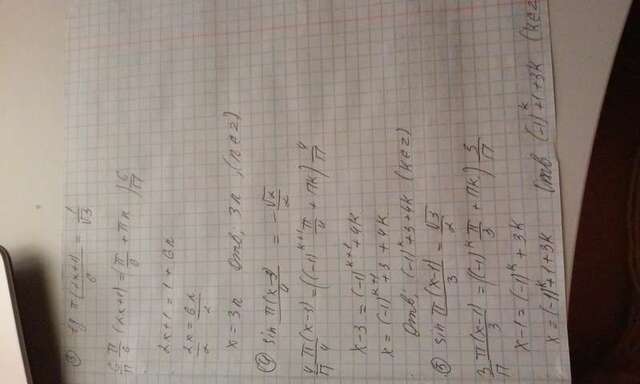 ③ tg π(2x+1)/6 = 1/√3
6/π π/6 (2x+1) = (π/6 + πn) 6/π
2x+1 = 1 + 6n
2x/2 = 6n/2
x = 3n Отв; 3n, (n∈z)
④ sin π(x-3)/4 = -√2/2
4/π π(x-3)/4 = ((-1)^k+1 π/4 + πk) 4/π
x-3 = (-1)^k+1 + 4k
x = (-1)^k+1 + 3 + 4k
Отв; (-1)^k + 3 + 4k (k∈z)
⑤ sin π(x-1)/3 = √3/2
3/π π(x-1)/3 = ((-1)^k π/3 + πk) 3/π
x-1 = (-1)^k + 3k
x = (-1)^k + 1 + 3k Отв (-1)^k + 1 + 3k (k∈z